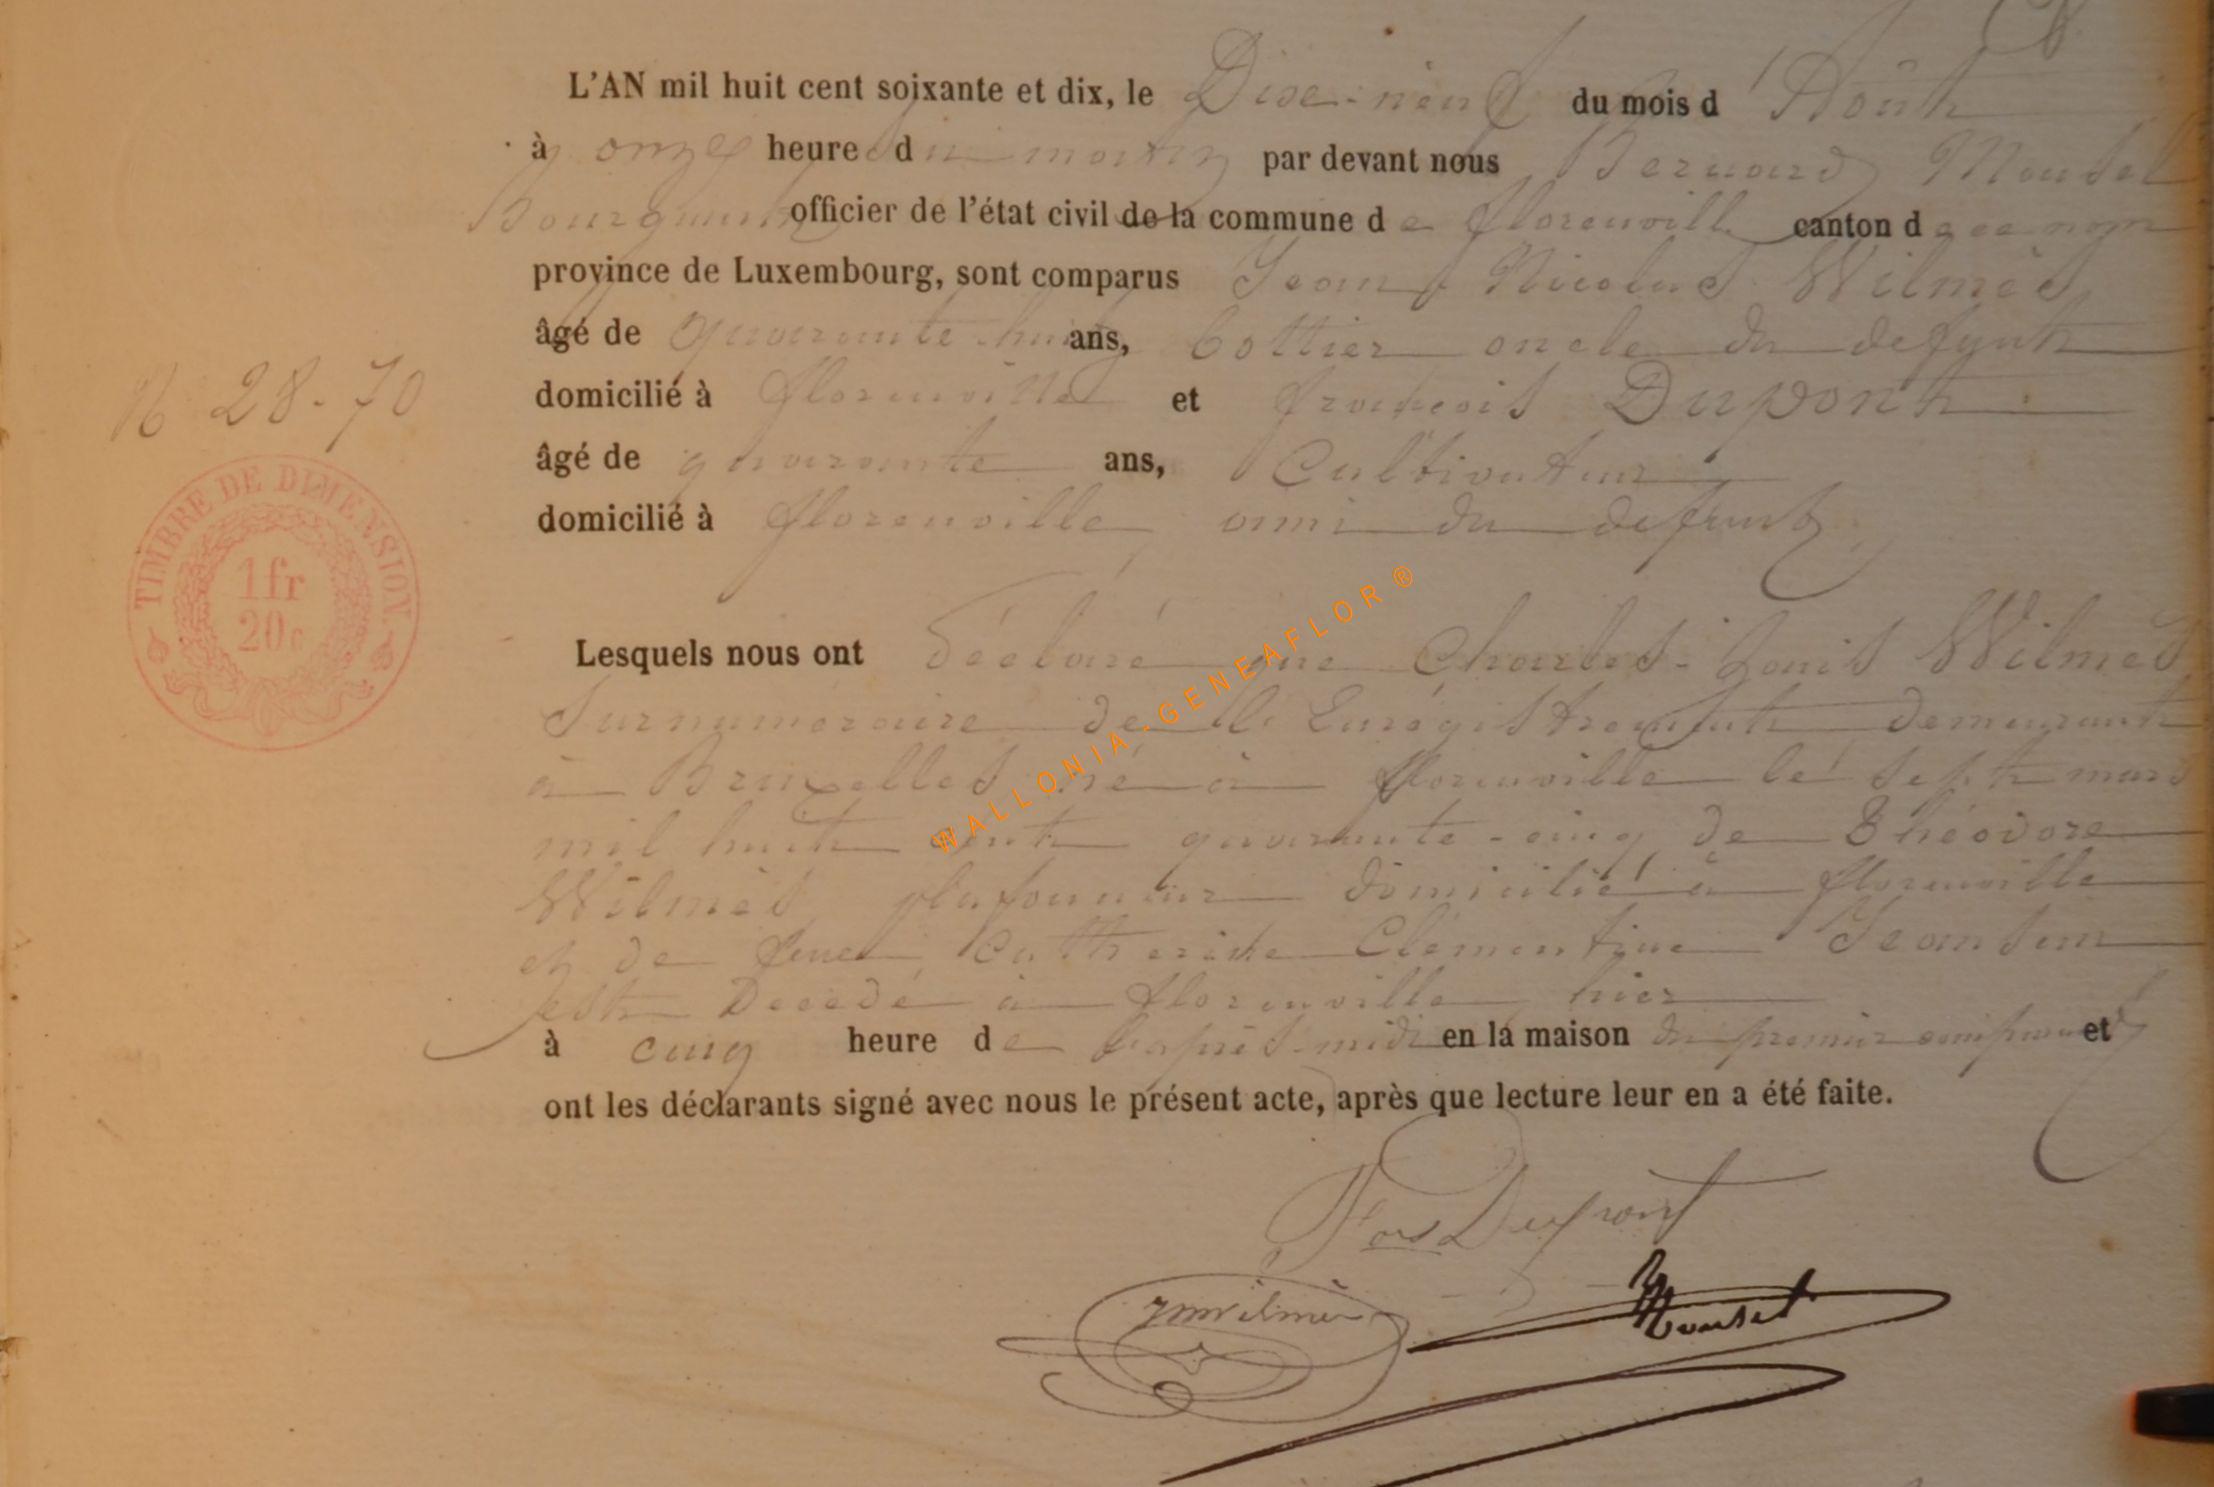 L'AN mil huit cent soixante et dix, le Dixe-neuf du mois d'Août
à onze heures du matin par devant nous Bernard Mousel
Bourgmestre officier de l'état civil de la commune de florenville canton de ce nom
province de Luxembourg, sont comparus Jean Nicolas Wilmès
âgé de quarante huit ans, Bottier oncle du defunt
domicilié à florenville et françois Dupont
âgé de quarante ans, Cultivateur
domicilié à florenville ami du defunt
N 28-70
TIMBRE DE DIMENSION
1fr
20c
Lesquels nous ont déclaré que Charles-Louis Wilmès
Surnuméraire de l'Enrégistrement demeurant
à Bruxelles né à florenville le sept mars
mil huit cent quarante-cinq de Théodore
Wilmès plafonneur domicilié à florenville
et de feue Catherine Clémentine Jeansem
est Decedé à florenville hier
à cinq heure de l'après-midi en la maison du premier comparant et
ont les déclarants signé avec nous le présent acte, après que lecture leur en a été faite.
Fois Dupont
JNWilmès
Mousel
WALLONIA-GENEAFLOR®